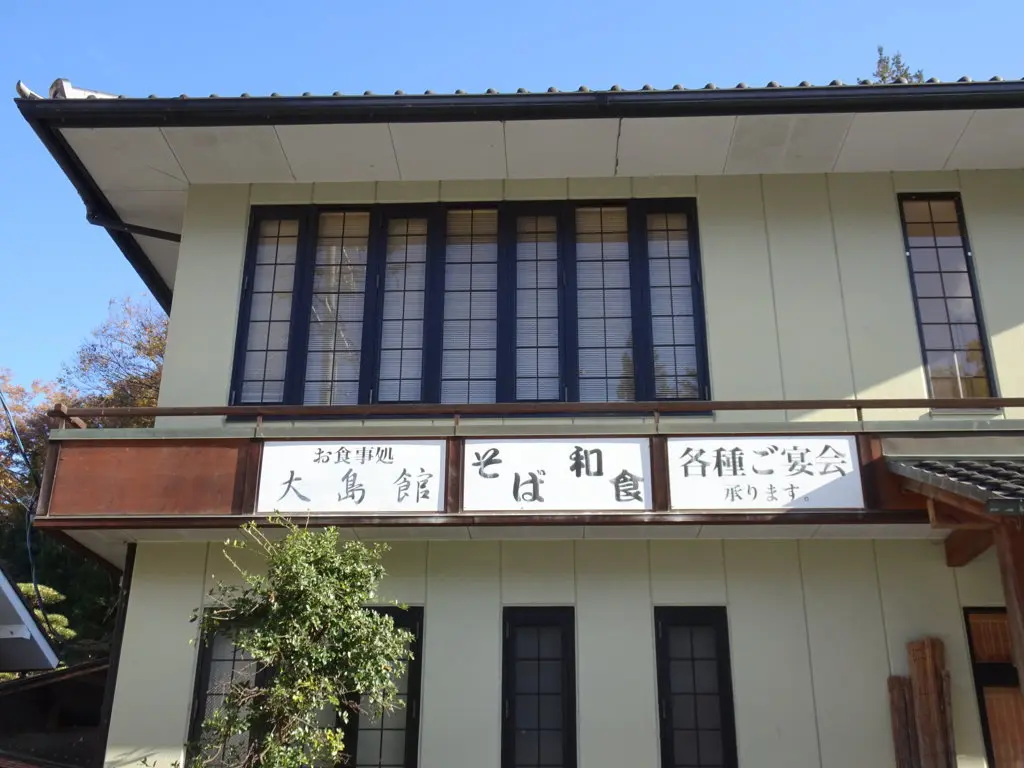 お食事処
大島館
そば
和食
各種ご宴会
承ります。